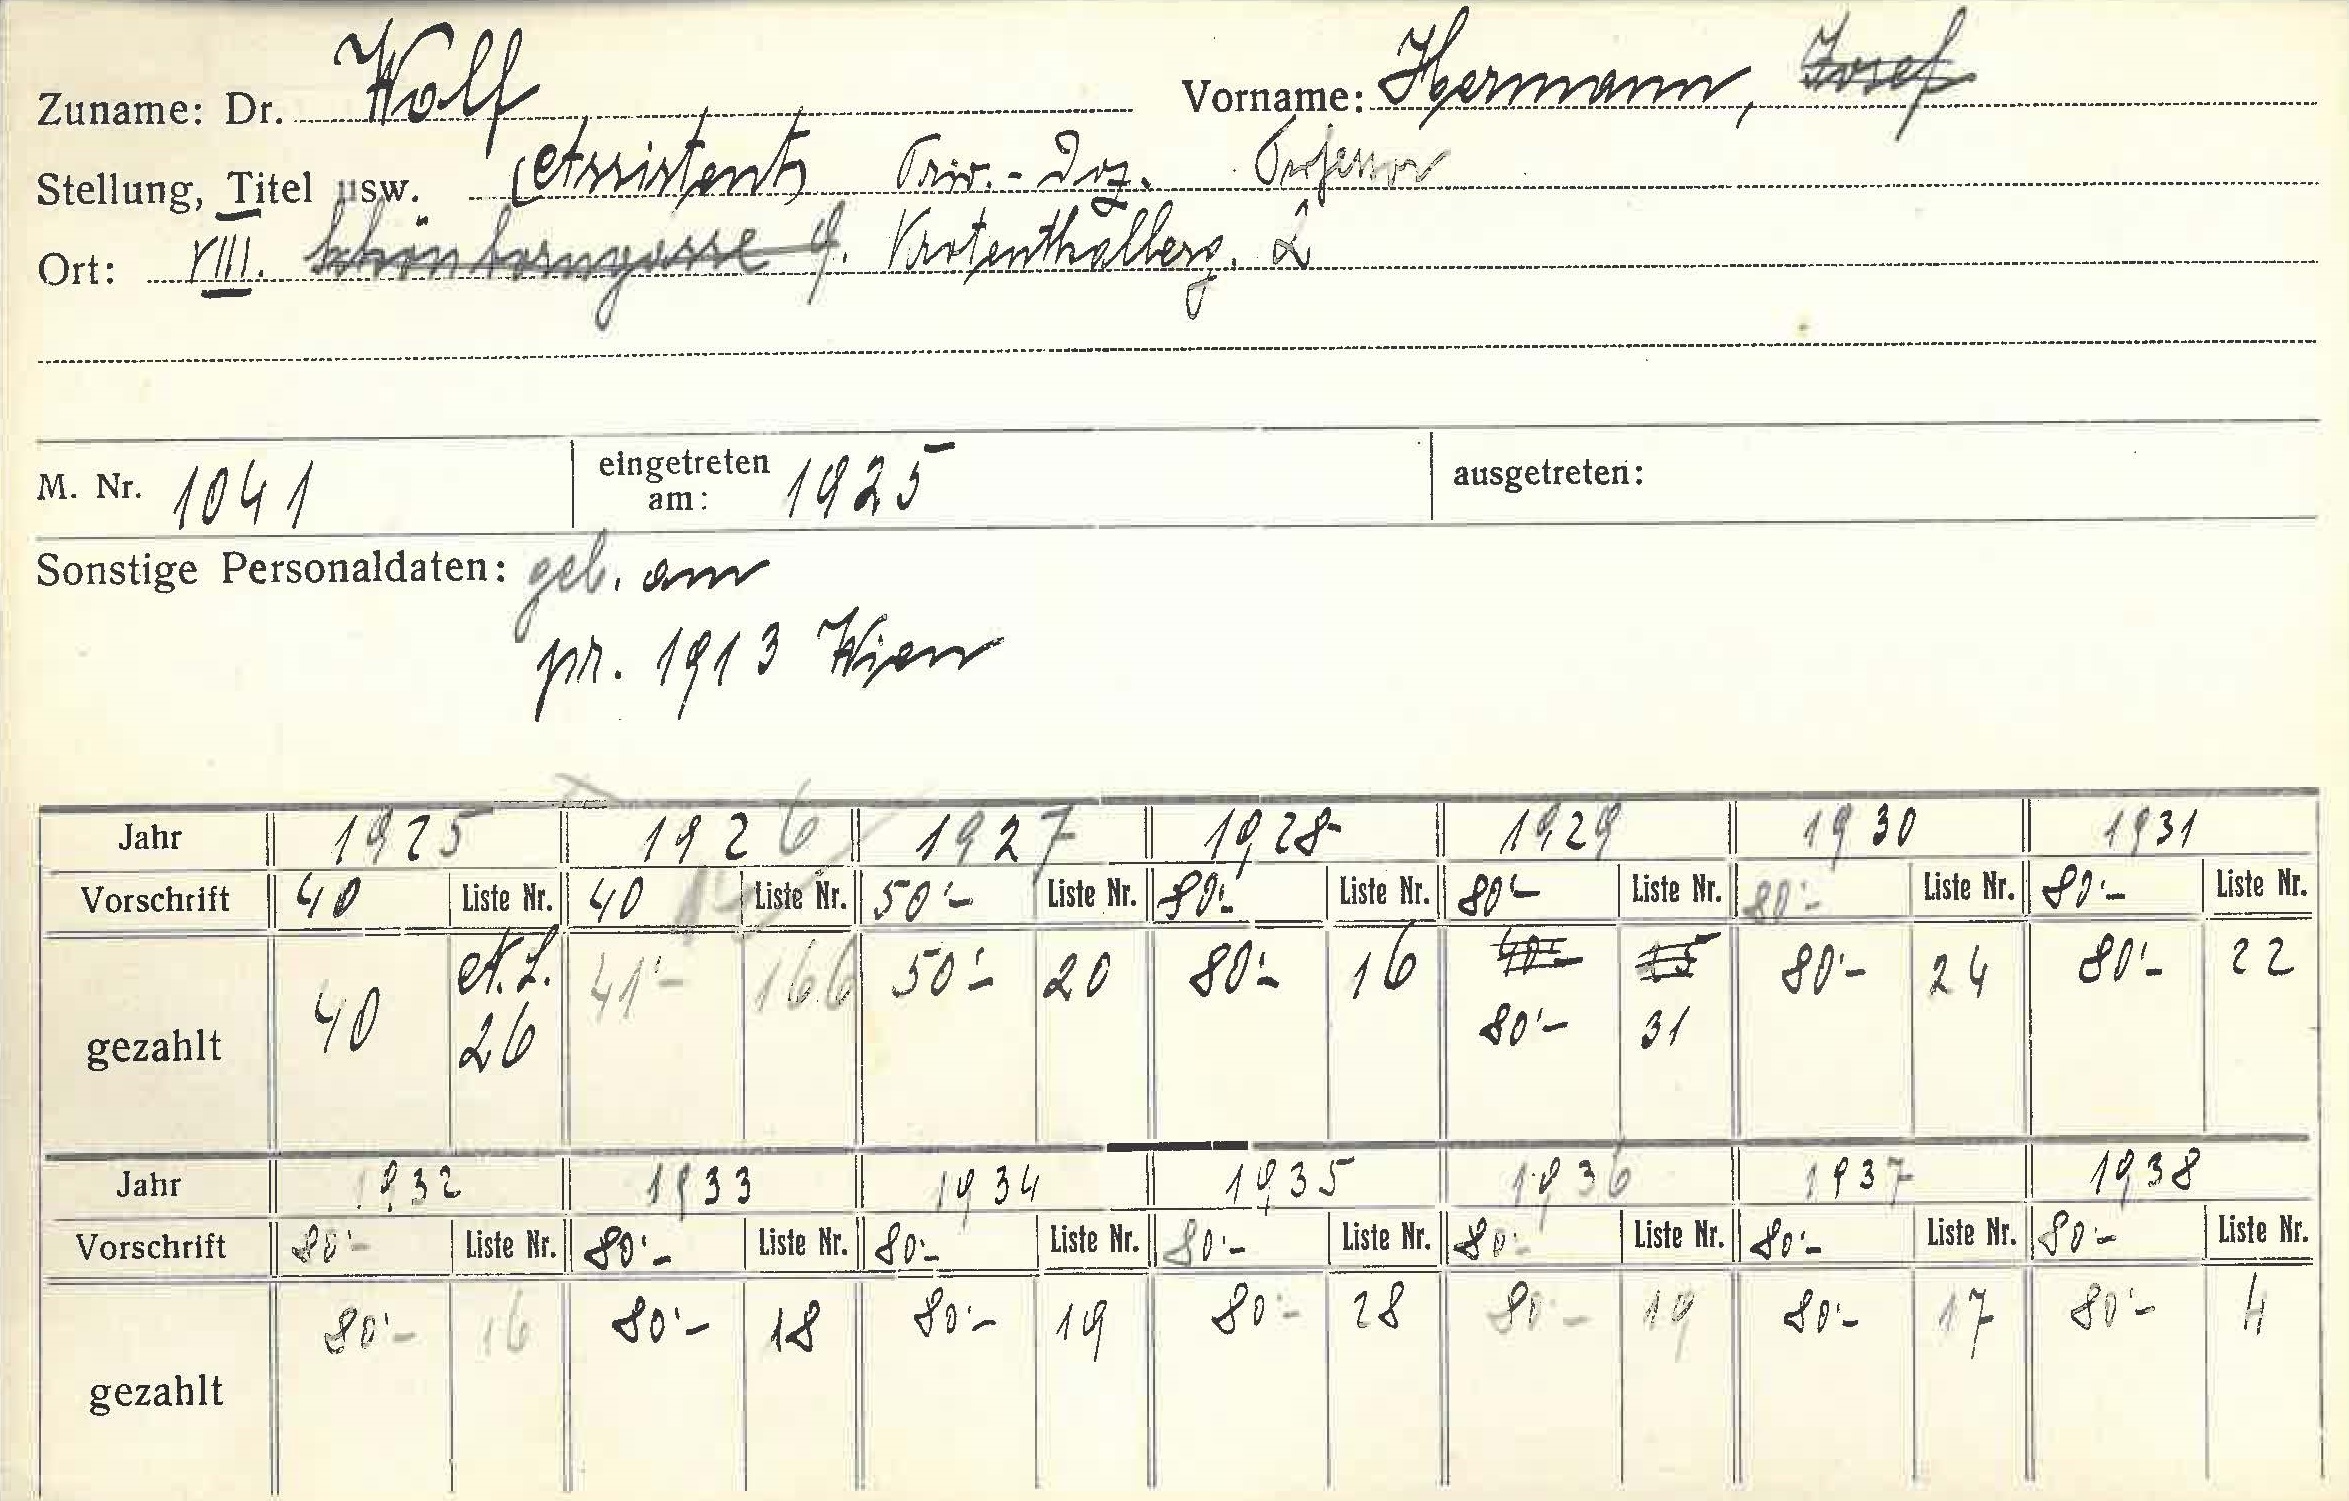 Zuname: Dr. Wolf Vorname: Hermann, Josef
Stellung, Titel usw. (Assistent) Priv.-Doz. Professor
Ort: VIII. Schönborngasse 9. Krotenthallerg. 2
M. Nr. 1041 eingetreten am: 1925 ausgetreten:
Sonstige Personaldaten: geb. am
pr. 1913 Wien
Jahr 1925 1926 1927 1928 1929 1930 1931
Vorschrift 40 Liste Nr. 40 Liste Nr. 50'- Liste Nr. 80'- Liste Nr. 80'- Liste Nr. 80'- Liste Nr. 80'- Liste Nr.
gezahlt 40 A.L. 26 41'- 166 50'- 20 80'- 16 40'- 15 80'- 24 80'- 22
80'- 31
Jahr 1932 1933 1934 1935 1936 1937 1938
Vorschrift 80'- Liste Nr. 80'- Liste Nr. 80'- Liste Nr. 80'- Liste Nr. 80'- Liste Nr. 80'- Liste Nr. 80'- Liste Nr.
gezahlt 80'- 16 80'- 18 80'- 19 80'- 28 80'- 19 80'- 17 80'- 4